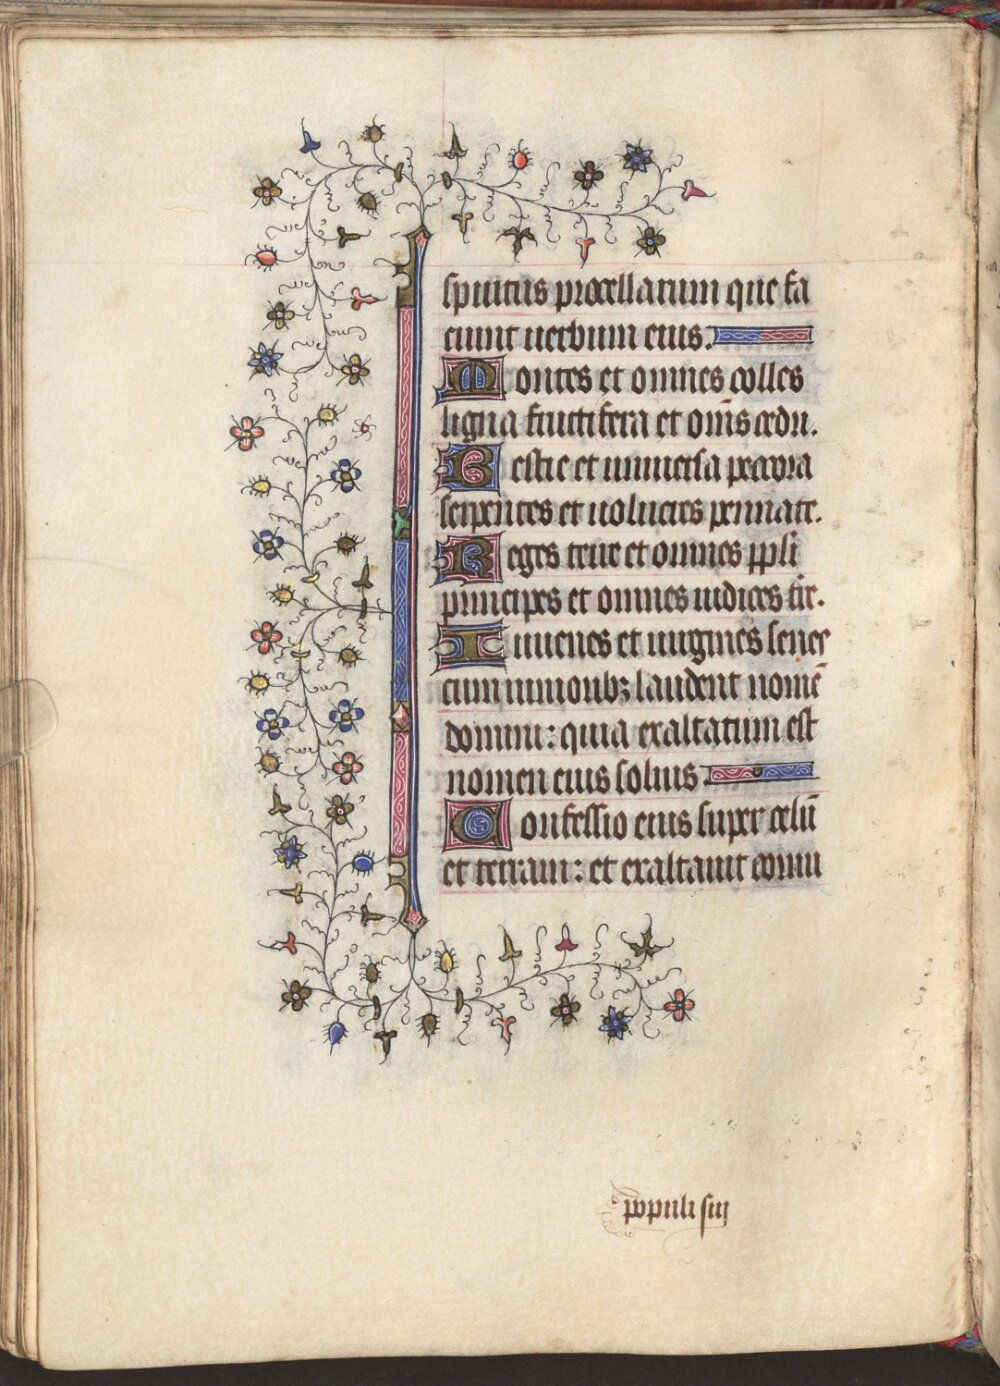 spiritus procellarum que fa
ciunt uerbum eius.
Montes et omnes colles
ligna fructifera et om̄s cedri.
Bestie et uniuersa pecora
serpentes et uolucres pennate.
Reges terre et omnes ppl̄i
principes et omnes iudices tr̄e.
Iuuenes et uirgines senes
cum iunioribꝫ laudent nomē
domini: quia exaltatum est
nomen eius solius
Confessio eius super celū
et terram: et exaltauit cornu
populi sui